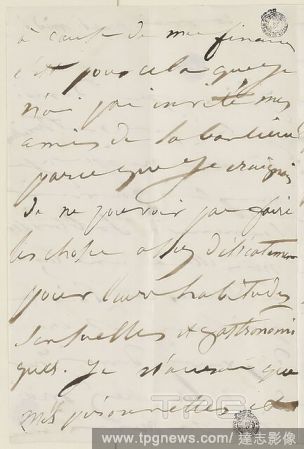 à cause de mes finances
c'est pour cela que je
n'ai pas invité mes
amis de la banlieue
parce que je craignais
de ne pouvoir pas faire
les choses assez délicatement
pour leurs habitudes
sensuelles et gastronomi
ques. Je n'avais que
mes
www.tpgnews.com/達志影像